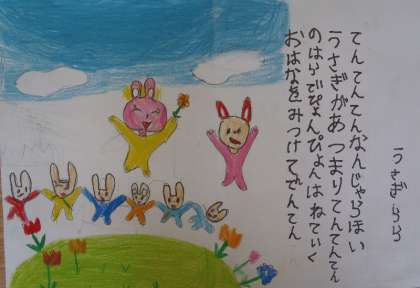 うさぎらら
てんてんてんなんじゃらほい
うさぎがあつまりてんてんてん
のはらでぴょんぴょんはねていく
おはなをみつけててんてん